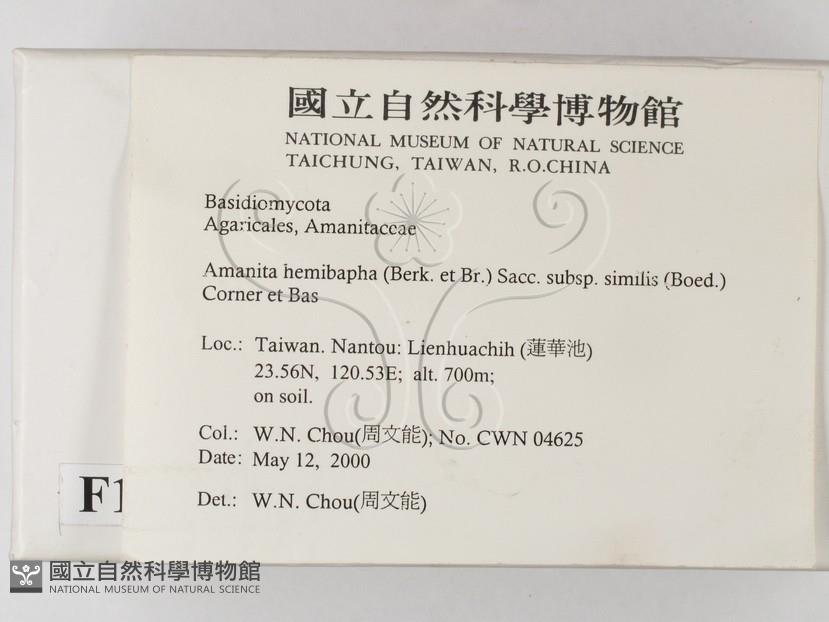 國立自然科學博物館
NATIONAL MUSEUM OF NATURAL SCIENCE
TAICHUNG, TAIWAN, R.O.CHINA
Basidiomycota
Agaricales, Amanitaceae
Amanita hemibapha (Berk. et Br.) Sacc. subsp. similis (Boed.)
Corner et Bas
Loc.: Taiwan. Nantou: Lienhuachih (蓮華池)
23.56N, 120.53E; alt. 700m;
on soil.
Col.: W.N. Chou(周文能); No. CWN 04625
Date: May 12, 2000
F1
Det.: W.N. Chou(周文能)
國立自然科學博物館
NATIONAL MUSEUM OF NATURAL SCIENCE